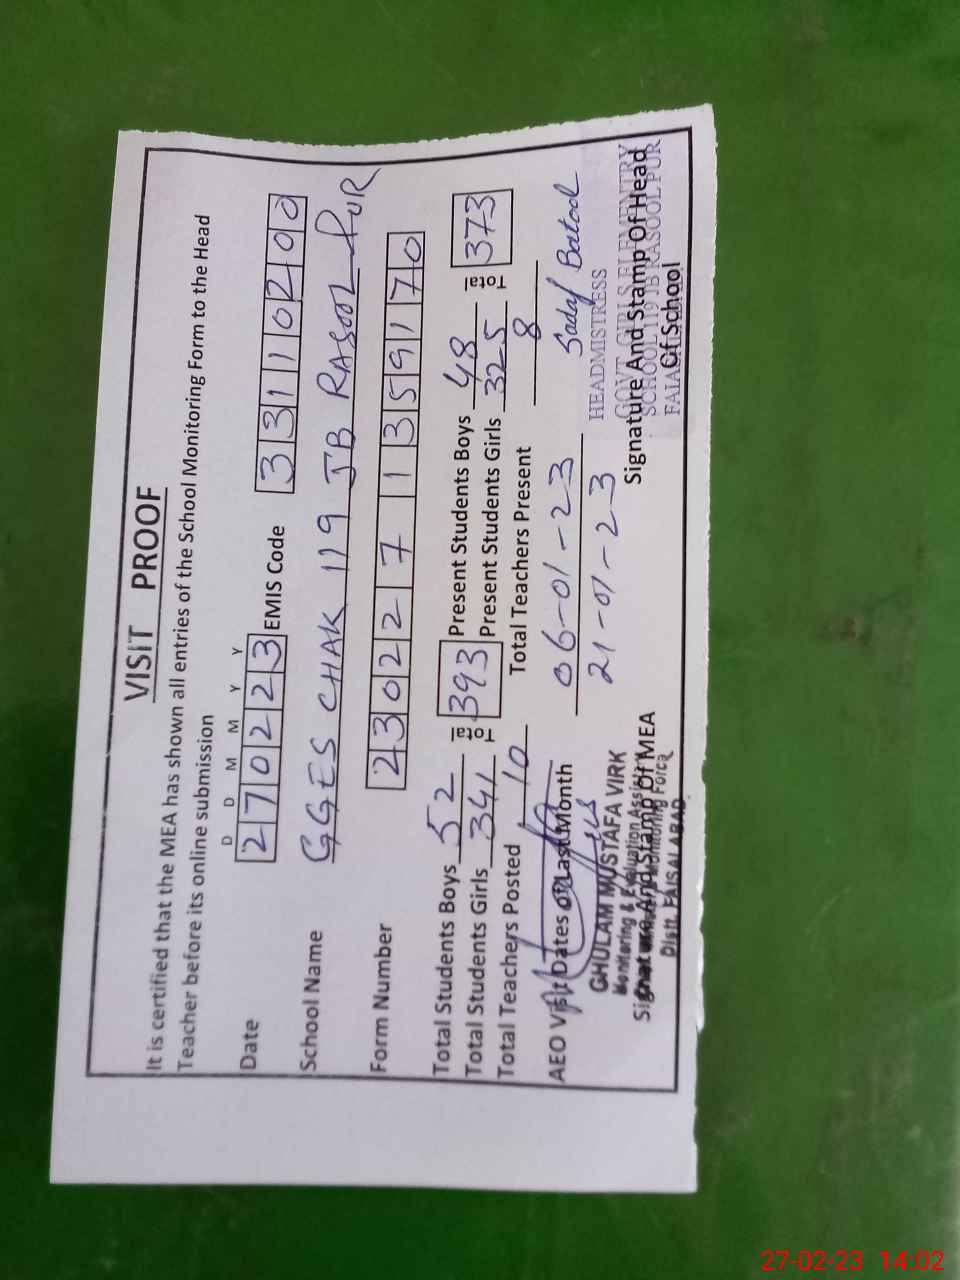 VISIT PROOF
It is certified that the MEA has shown all entries of the School Monitoring Form to the Head
Teacher before its online submission
D D M M Y Y
Date 270223 EMIS Code 33110200
School Name GGES CHAK 119 JB RASOOL PUR
Form Number 2302271359170
Total Students Boys 52 Total 393 Present Students Boys 48 Total 373
Total Students Girls 341 Present Students Girls 325
Total Teachers Posted 10 Total Teachers Present 8
AEO Visit Dates of Last Month 06-01-23
21-01-23
Sadaf Batool
GHULAM MUSTAFA VIRK
Monitoring & Evaluation Assistant
Monitoring Force
Distt. FAISALABAD
Signature And Stamp Of MEA
HEADMISTRESS
GOVT GIRLS ELEMENTRY
SCHOOL 119 JB RASOOLPUR
Signature And Stamp Of Head
Of School
27-02-23 14:02